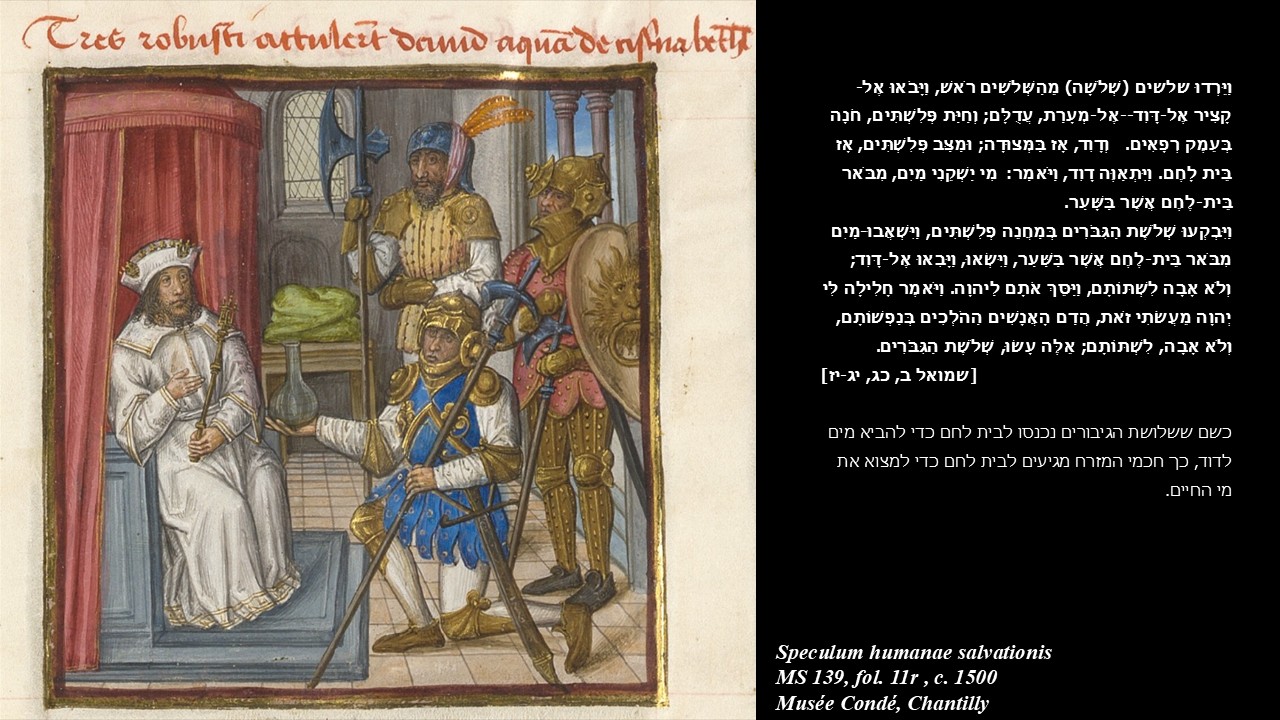 Tres robusti attulerũt david aquã de cisterna bethlẽ
וַיֵּרְדוּ שלשים (שְׁלֹשָׁה) מֵהַשְּׁלֹשִׁים רֹאשׁ, וַיָּבֹאוּ אֶל-
קָצִיר אֶל-דָּוִד--אֶל-מְעָרַת, עֲדֻלָּם; וְחַיַּת פְּלִשְׁתִּים, חֹנָה
בְּעֵמֶק רְפָאִים. וְדָוִד, אָז בַּמְּצוּדָה; וּמַצַּב פְּלִשְׁתִּים, אָז
בֵּית לָחֶם. וַיִּתְאַוֶּה דָוִד, וַיֹּאמַר: מִי יַשְׁקֵנִי מַיִם, מִבֹּאר
בֵּית-לֶחֶם אֲשֶׁר בַּשָּׁעַר.
וַיִּבְקְעוּ שְׁלֹשֶׁת הַגִּבֹּרִים בְּמַחֲנֵה פְלִשְׁתִּים, וַיִּשְׁאֲבוּ-מַיִם
מִבֹּאר בֵּית-לֶחֶם אֲשֶׁר בַּשַּׁעַר, וַיִּשְׂאוּ, וַיָּבִאוּ אֶל-דָּוִד;
וְלֹא אָבָה לִשְׁתּוֹתָם, וַיַּסֵּךְ אֹתָם לַיהוָה. וַיֹּאמֶר חָלִילָה לִּי
יְהוָה מֵעֲשֹׂתִי זֹאת, הֲדַם הָאֲנָשִׁים הַהֹלְכִים בְּנַפְשׁוֹתָם,
וְלֹא אָבָה, לִשְׁתּוֹתָם; אֵלֶּה עָשׂוּ, שְׁלֹשֶׁת הַגִּבֹּרִים.
[שמואל ב, כג, יג-יז]
כשם ששלושת הגיבורים נכנסו לבית לחם כדי להביא מים
לדוד, כך חכמי המזרח מגיעים לבית לחם כדי למצוא את
מי החיים.
Speculum humanae salvationis
MS 139, fol. 11r , c. 1500
Musée Condé, Chantilly